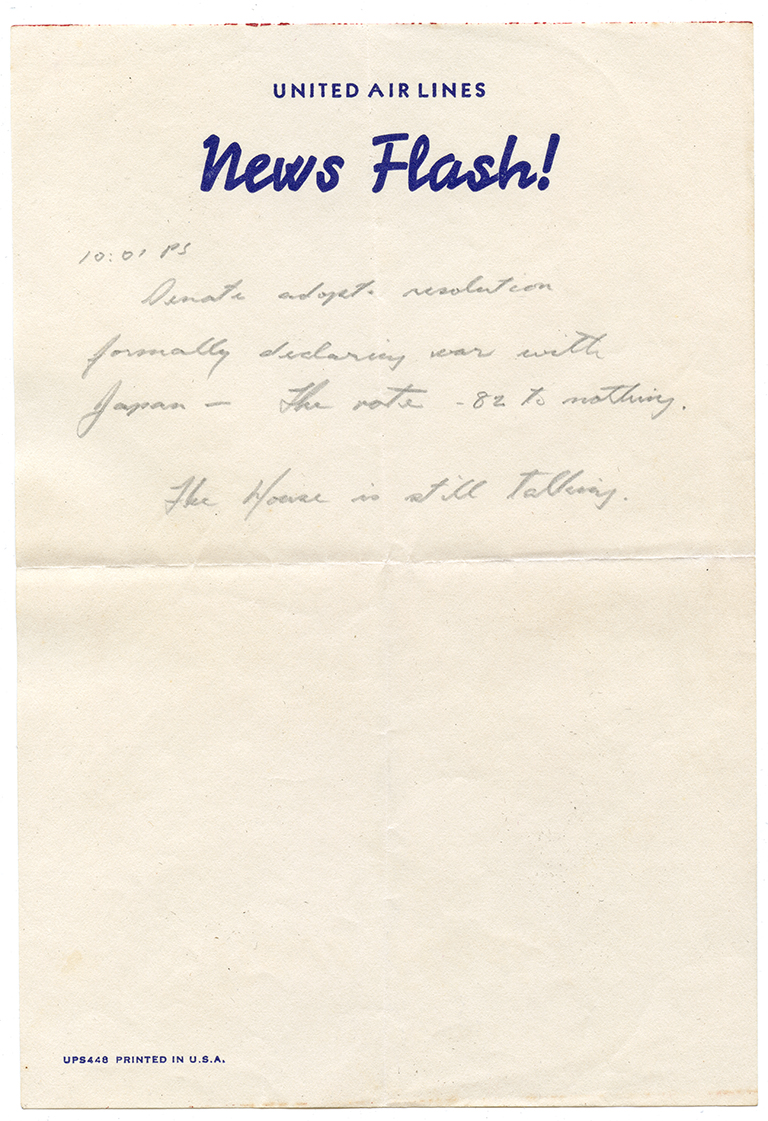 UNITED AIR LINES
News Flash!
10:01 PS
Senate adopts resolution
formally declaring war with
Japan — The vote - 82 to nothing.
The House is still talking.
UPS448 PRINTED IN U.S.A.